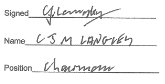 Signed CJLangley
Name C J M LANGLEY
Position Chairman